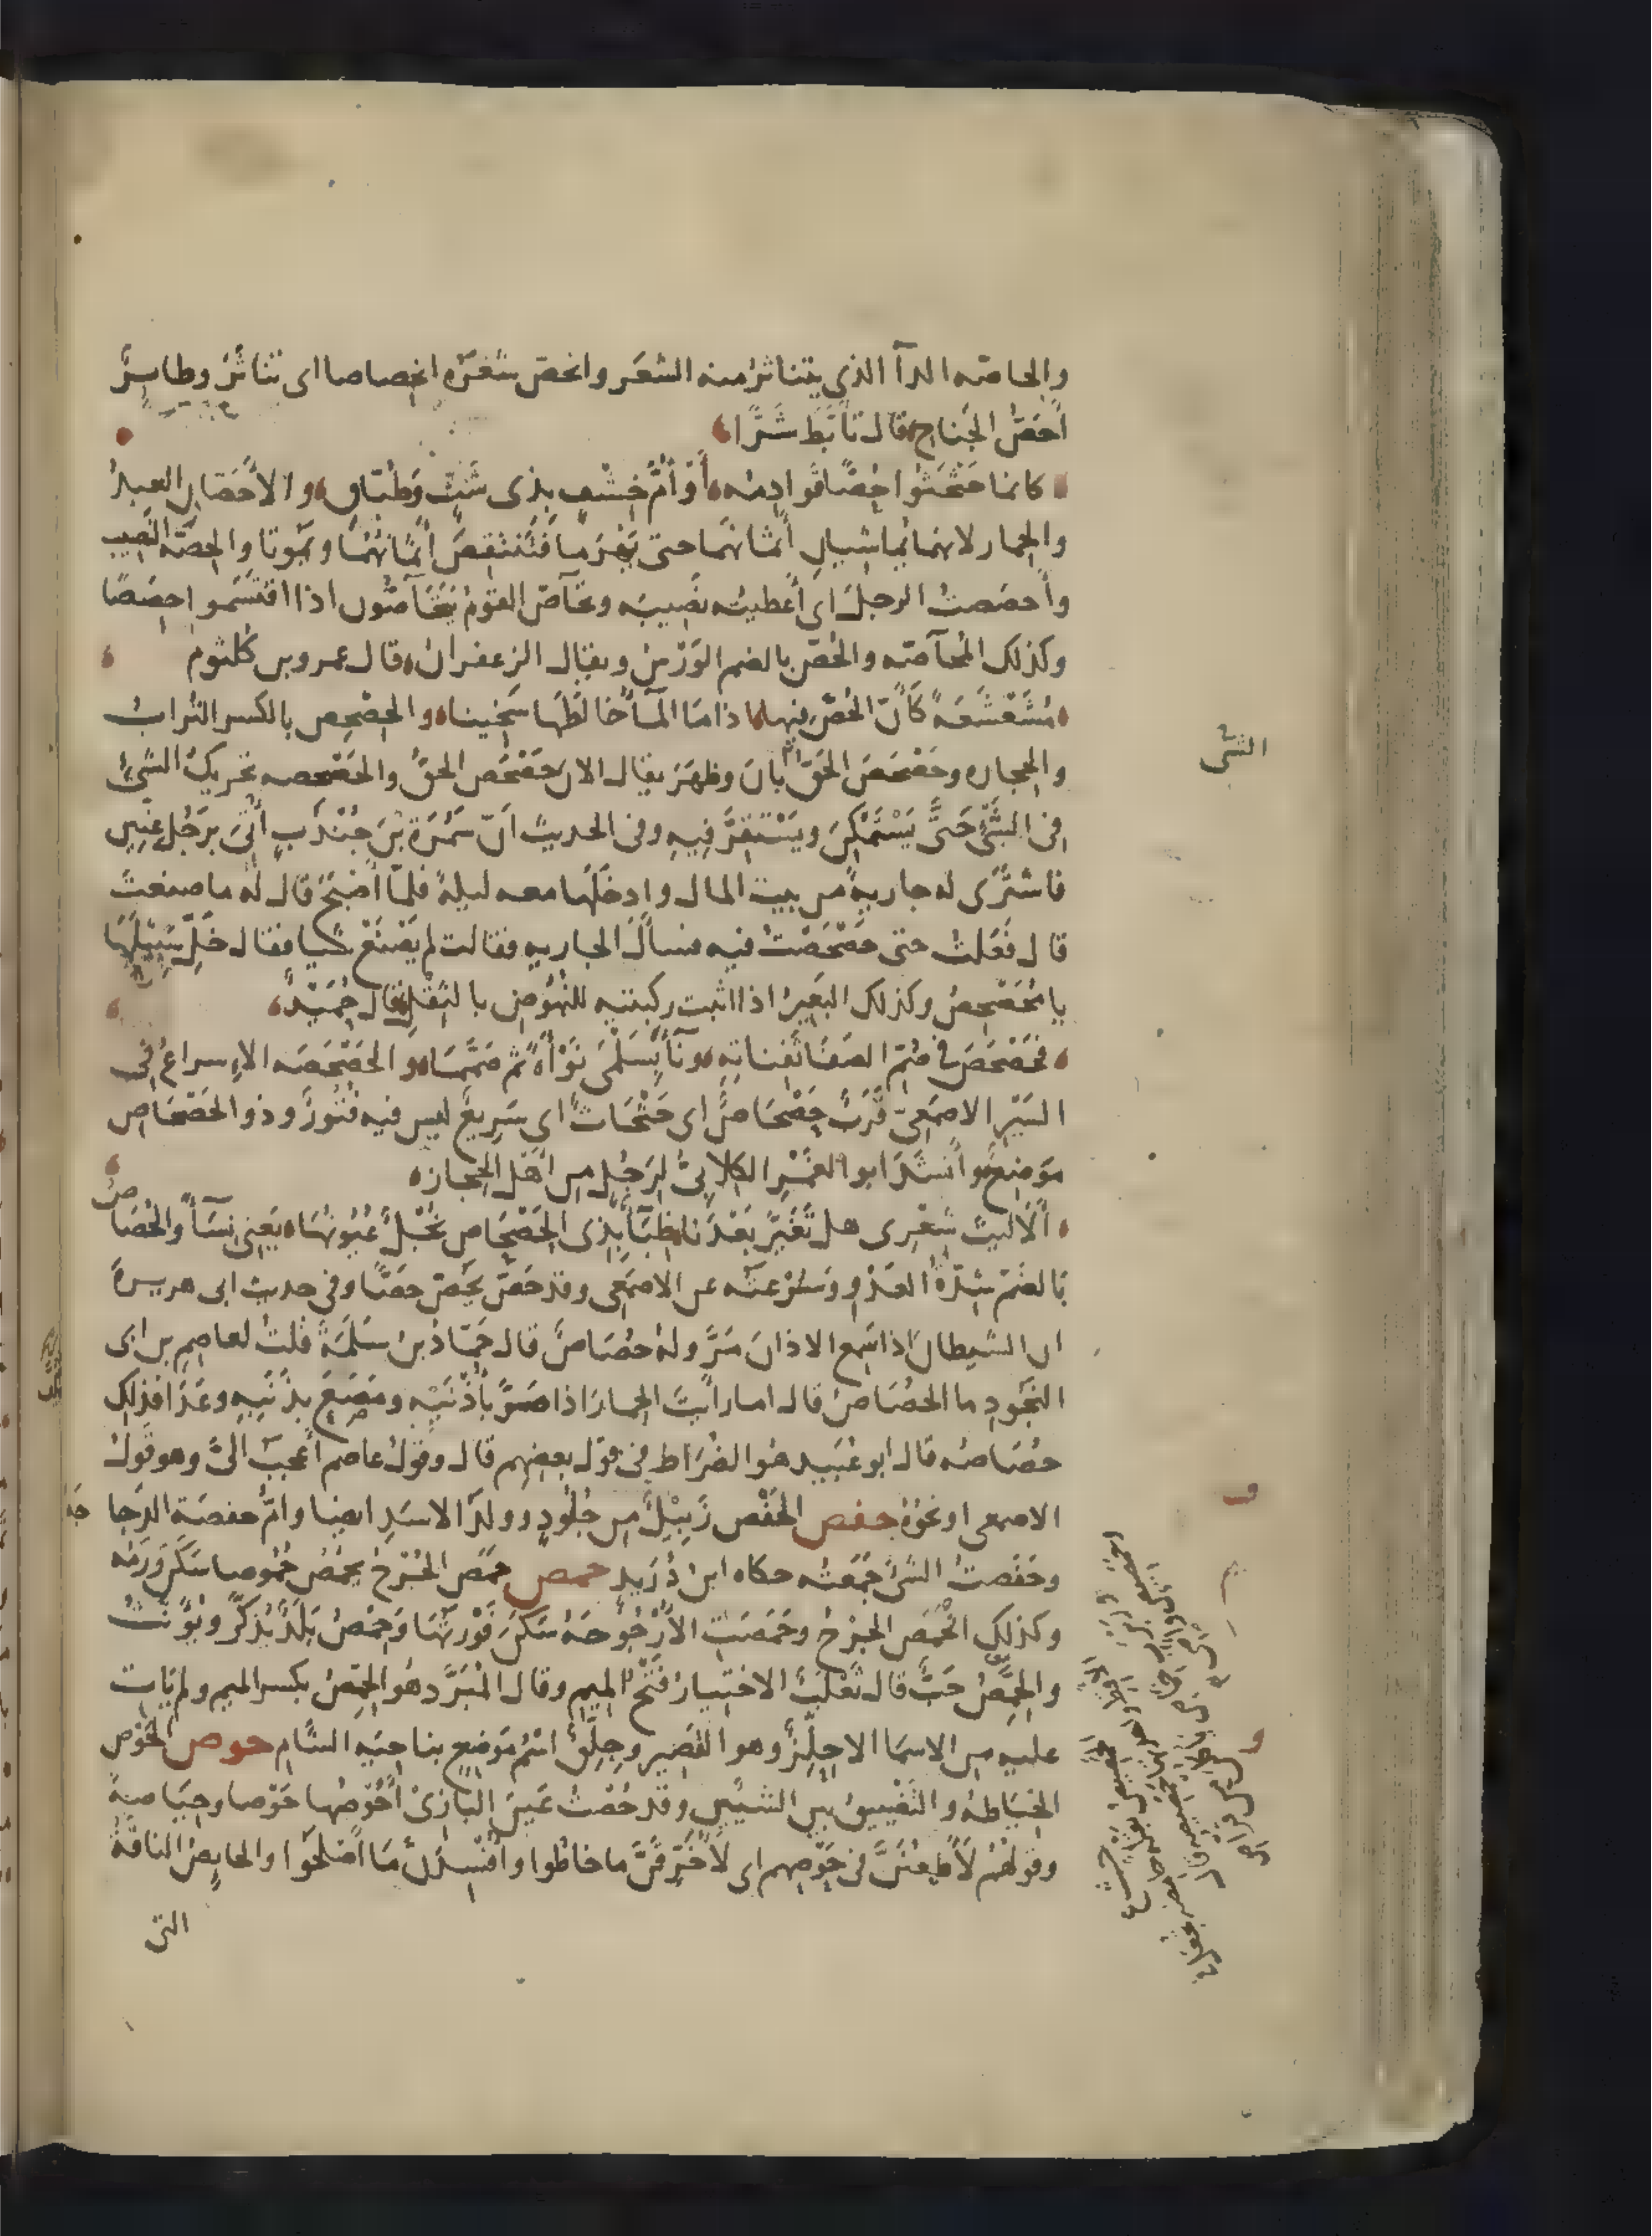 والحاصّه الدآ الذى يتناثر منه الشعَر وانحصّ شَعَرُه انحِصاصا اى تناثَرَ وطايرٌ
أحَصُّ الجَناحِ قال تأبّطَ شَرًّا
كانما حَثْحَثُوا حُصًّا قَوادِمُه أَوْ أُمَّ خِشْفٍ بذى شَثٍّ وَطُبّاقِ والأحَصّانِ العبدُ
والحِمار لانهما يُماشيانِ أثمانَهما حتى يَهْرَما فَتَنْتَقِصُ أثمانُهُما ويمَوتا والحِصّة النَصيب
وأحصَصتُ الرجلَ اى أعطيتُه نصيبَه وتحَآصّ القومُ يَتَحَآصّون اذا اقتسَموا حِصَصًا
وكذلك المُحآصّه والحُصّ بالضم الوَرْسُ ويقال الزعفرانُ قال عمرو بن كلثوم
مُشَعْشَعَةً كَأنّ الحُصَّ فيها اذا ما المآءُ خالَطَها سَخينا والحِصْحِص بالكسر التُرابُ
والحجاره وحَصْحَصَ الحَقّ بانَ وظهَرَ يقال الان حَصْحَصَ الحقُّ والحَصْحَصه تحريكُ الشىْءِ
فى الشَّىْءِ حَتَّى يَسْتَمْكِنَ ويَسْتَقِرَّ فِيهِ وفى الحديث انّ سَمُرَةَ بْنَ جُنْدَبٍ أُتِىَ برَجُلٍ عِنّينٍ
فاشترَى له جاريةً من بيت المال وادخَلَها معه ليلةً فلمّا أصْبَحَ قال له ما صنعتَ
قال فَعَلتُ حتى حَصْحَصْتُ فيه فسألَ الجاريه فقالت لم يَصْنَعْ شيا فقال خَلِّ سَبيلَها
يا مُحَصْحِصُ وكذلك البَعِيرُ اذا اثبت ركبتيه للنُهُوضِ بالثِقْلِ قال حُمَيْدٌ
فحَصْحَصَ فى صُمّ الصَفا ثَفِناتِهِ ونآءَ بسَلْمَى نَوْأةً ثم صَمَّمَا والحَصْحَصَه الإسراعُ فى
السَيْر الاصمَعِىّ قَرَبٌ حَصْحَاصٌ اى حَثْحَاثٌ اى سَرِيعٌ ليس فيه فُتُورٌ وذو الحَصْحَاصِ
مَوضِعٌ وأنشَدَ ابو الغَمْرِ الكلابىُّ لِرَجُلٍ من اَهْلِ الحِجازِ
أَلَا ليتَ شِعْرِى هل تَغَيّرَ بَعْدَنا ظِبَآءٌ بِذِى الحَصْحَاصِ نُجْلٌ عُيُونُهَا يَعنِى نِسَآءً والحُصَاصُ
بالضَم شِدّةُ العَدْوِ وسُرْعَتُه عن الاصمَعى وقد حَصّ يَحُصّ حَصًّا وفى حديث ابى هريرةَ
ان الشيطانَ اذا سَمِعَ الاذانَ مَرَّ ولهُ حُصَاصٌ قال حَمّادُ بن سَلَمَةَ قُلتُ لعاصِمِ بن ابى
النَجُودِ ما الحُصَاصُ قال اما رأيتَ الحِمارَ اذا صَرَّ بأُذُنَيْهِ ومَصَعَ بِذَنَبِهِ وعَدَا فذلِك
حُصَاصُه قال ابو عُبَيد هُو الضُرَاط فى قول بعضِهم قال وقولُ عاصم أعجبُ الىَّ وهو قولُ
الاصمعى او نحوُهُ حفص الحَفْص زَبِيْلٌ من جُلُودٍ وولَدُ الاسَدِ ايضا وامُّ حفصَة الدَجاجَة
وحَفَصتُ الشَىْءَ جَمَعتُه حكاه ابن دُرَيد حمص حَمَصَ الجُرْحُ يحْمُصُ حُموصا سَكَنَ وَرَمُه
وكذلك انحَمَصَ الجُرْحُ وحَمَصَتِ الأُرْجُوحَهُ سَكَنَ فَوْرَتُهَا وحِمْصُ بَلَدٌ يُذكَّرُ ويُؤنّثُ
والحِمَّصُ حَبٌّ قال ثَعْلَبٌ الاختيارُ فَتْحُ المِيمِ وقال المُبَرَّدُ هُو الحِمِّصُ بكسر الميم ولم يَات
عليه من الاسمَا الا حِلِّزٌ وهو القَصِير وجِلِّقٌ اسْمُ مَوضِعٍ بناحِيَه الشَامِ حوص الحَوْص
الخِيَاطةُ والتَضْييقُ بين الشيئين وقد حُصْتُ عَينَ البَازِىْ أحُوصُها حَوْصا وحِيَاصَةً
وقولُهُمْ لَأطْعُنَنَّ فى حَوْصِهم اى لأَخْرِقَنَّ ما خاطُوا وأُفْسِدَنَّ مَا اصْلَحُوا والحايِصُ الناقَةُ
التى
الشى